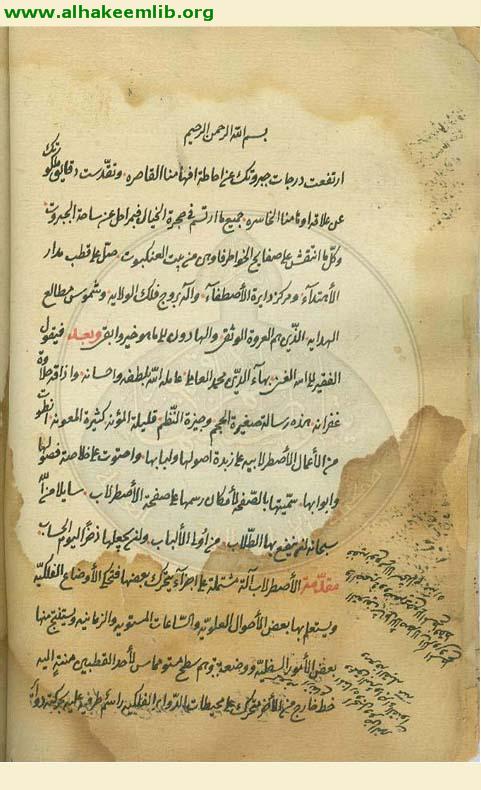 www.alhakeemlib.org
بسم الله الرحمن الرحيم
ارتفعت درجات جبروتك عن احاطة افهامنا القاصره وتقدست دقايق ملكوتك
عن علاقه اوهامنا الخاسره جميع ما ارتسم في حجرة الخيال فبمراحل عن ساحة الجبروت
وكل ما انتقش على صفايح الخواطر فاوهن من بيت العنكبوت صل على قطب مدار
الأهتداء ومركز دايرة الأصطفاء وآله بروج فلك الولايه وشموس مطالع
الهدايه الذين هم العروة الوثقى والهادون الى ما هو خير وابقى وبعد فيقول
الفقير الى الله الغني بهاء الدين محمد العاملي عامله الله بلطفه واحسانه واذاقه حلاوة
غفرانه هذه رسالة صغيرة الحجم وجيزة النظم قليلة المؤنه كثيرة المعونه انطوت
من الأعمال الأصطرلابيه على زبدة اصولها ولبابها واحتوت على خلاصة فصولها
وابوابها سميتها بالصفيحه لأمكان رسمها على صفحة الأصطرلاب سايلا من الله
سبحانه ان ينفع بها الطلاب من اولى الألباب وان يجعلها ذخرا ليوم الحساب
مقدمة الأصطرلاب آلة مشتملة على اجزاء يتحرك بعضها فتحكى الأوضاع الفلكيه
ويستعلم بها بعض الأحوال العلويه والساعات المستويه والزمانيه ويستنتج منها
بعض الأمور السفليه ووضعه بتوهم سطح مستو مماس لأحد القطبين منته اليه
خط خارج من الآخر متحرك على محيطات الدواير الفلكيه راسم طرفه عليه بحركته دواير